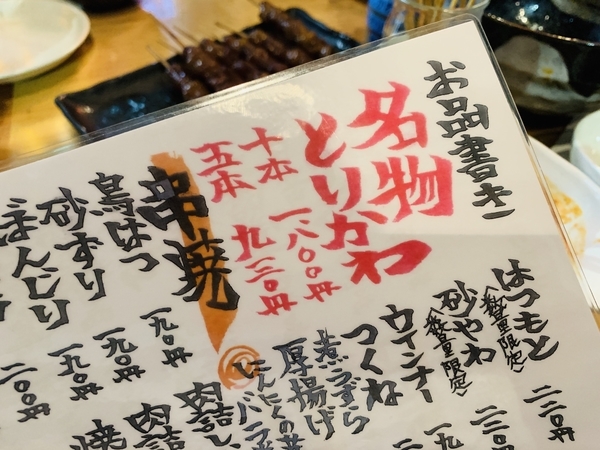 お品書き
名物
とりかわ
十本 一、八〇〇円
五本 九二〇円
串焼
鳥はつ 一九〇円
砂ずり 一九〇円
ぼんじり 一九〇円
二〇〇円
はつもと〈数量限定〉 二二〇円
砂やわ〈数量限定〉 二二〇
ウインナー 一九
つくね
煮うずら
厚揚げ
にんにくの芽
バラ
肉詰
肉詰
焼